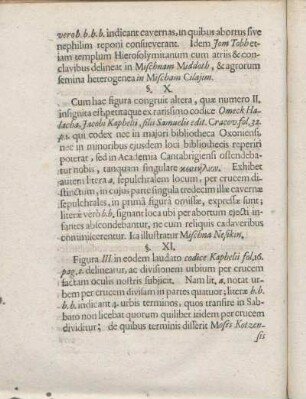 vero b. b. b. b. indicant cavernas, in quibus abortus sive
nephilim reponi consueverant. Idem Jom Tobh et-
iam templum Hierosolymitanum cum atriis & con-
clavibus delineat in Mischnam Middoth, & agrorum
semina heterogenea in Mischam Cilajim.
§. X.
Cum hac figura congruit altera, quæ numero II.
insignita est, petitaque ex rarissimo codice Omeck Ha-
lacha, Jacobi Kaphelis, filii Samuelis edit. Cracov. fol. 32.
p. 1. qui codex nec in majori bibliotheca Oxoniensi,
nec in ullis eiusdem loci bibliothecis reperiri
poterat, sed in Academia Cantabrigiensi ostendeba-
tur nobis, tanquam singulare κειμήλιον. Exhibet
autem litera a, sepulchralem locum, per crucem di-
stinctum, in cujus parte singula tredecim illæ cavernæ
sepulchrales, in prima figura omissæ, expressæ sunt;
literæ verò b.b, signant loca ubi per abortum ejecti in-
fantes abscondebantur, ne cum reliquis cadaveribus
commiscerentur. Ita illustratur Mischna Nesikin.
§. XI.
Figura III. in eodem laudato codice Kaphelis fol. 16.
pag. 1. delineatur, ac divisionem urbium per crucem
factam oculis nostris subjicit. Nam lit. a. notat ur-
bem per crucem divisam in partes quatuor; literæ b. b.
b. b. indicant 4. urbis terminos, quos transire in Sab-
bato non licebat quorum quilibet itidem per crucem
dividitur; de quibus terminis disserit Moses Kotzen-
sis